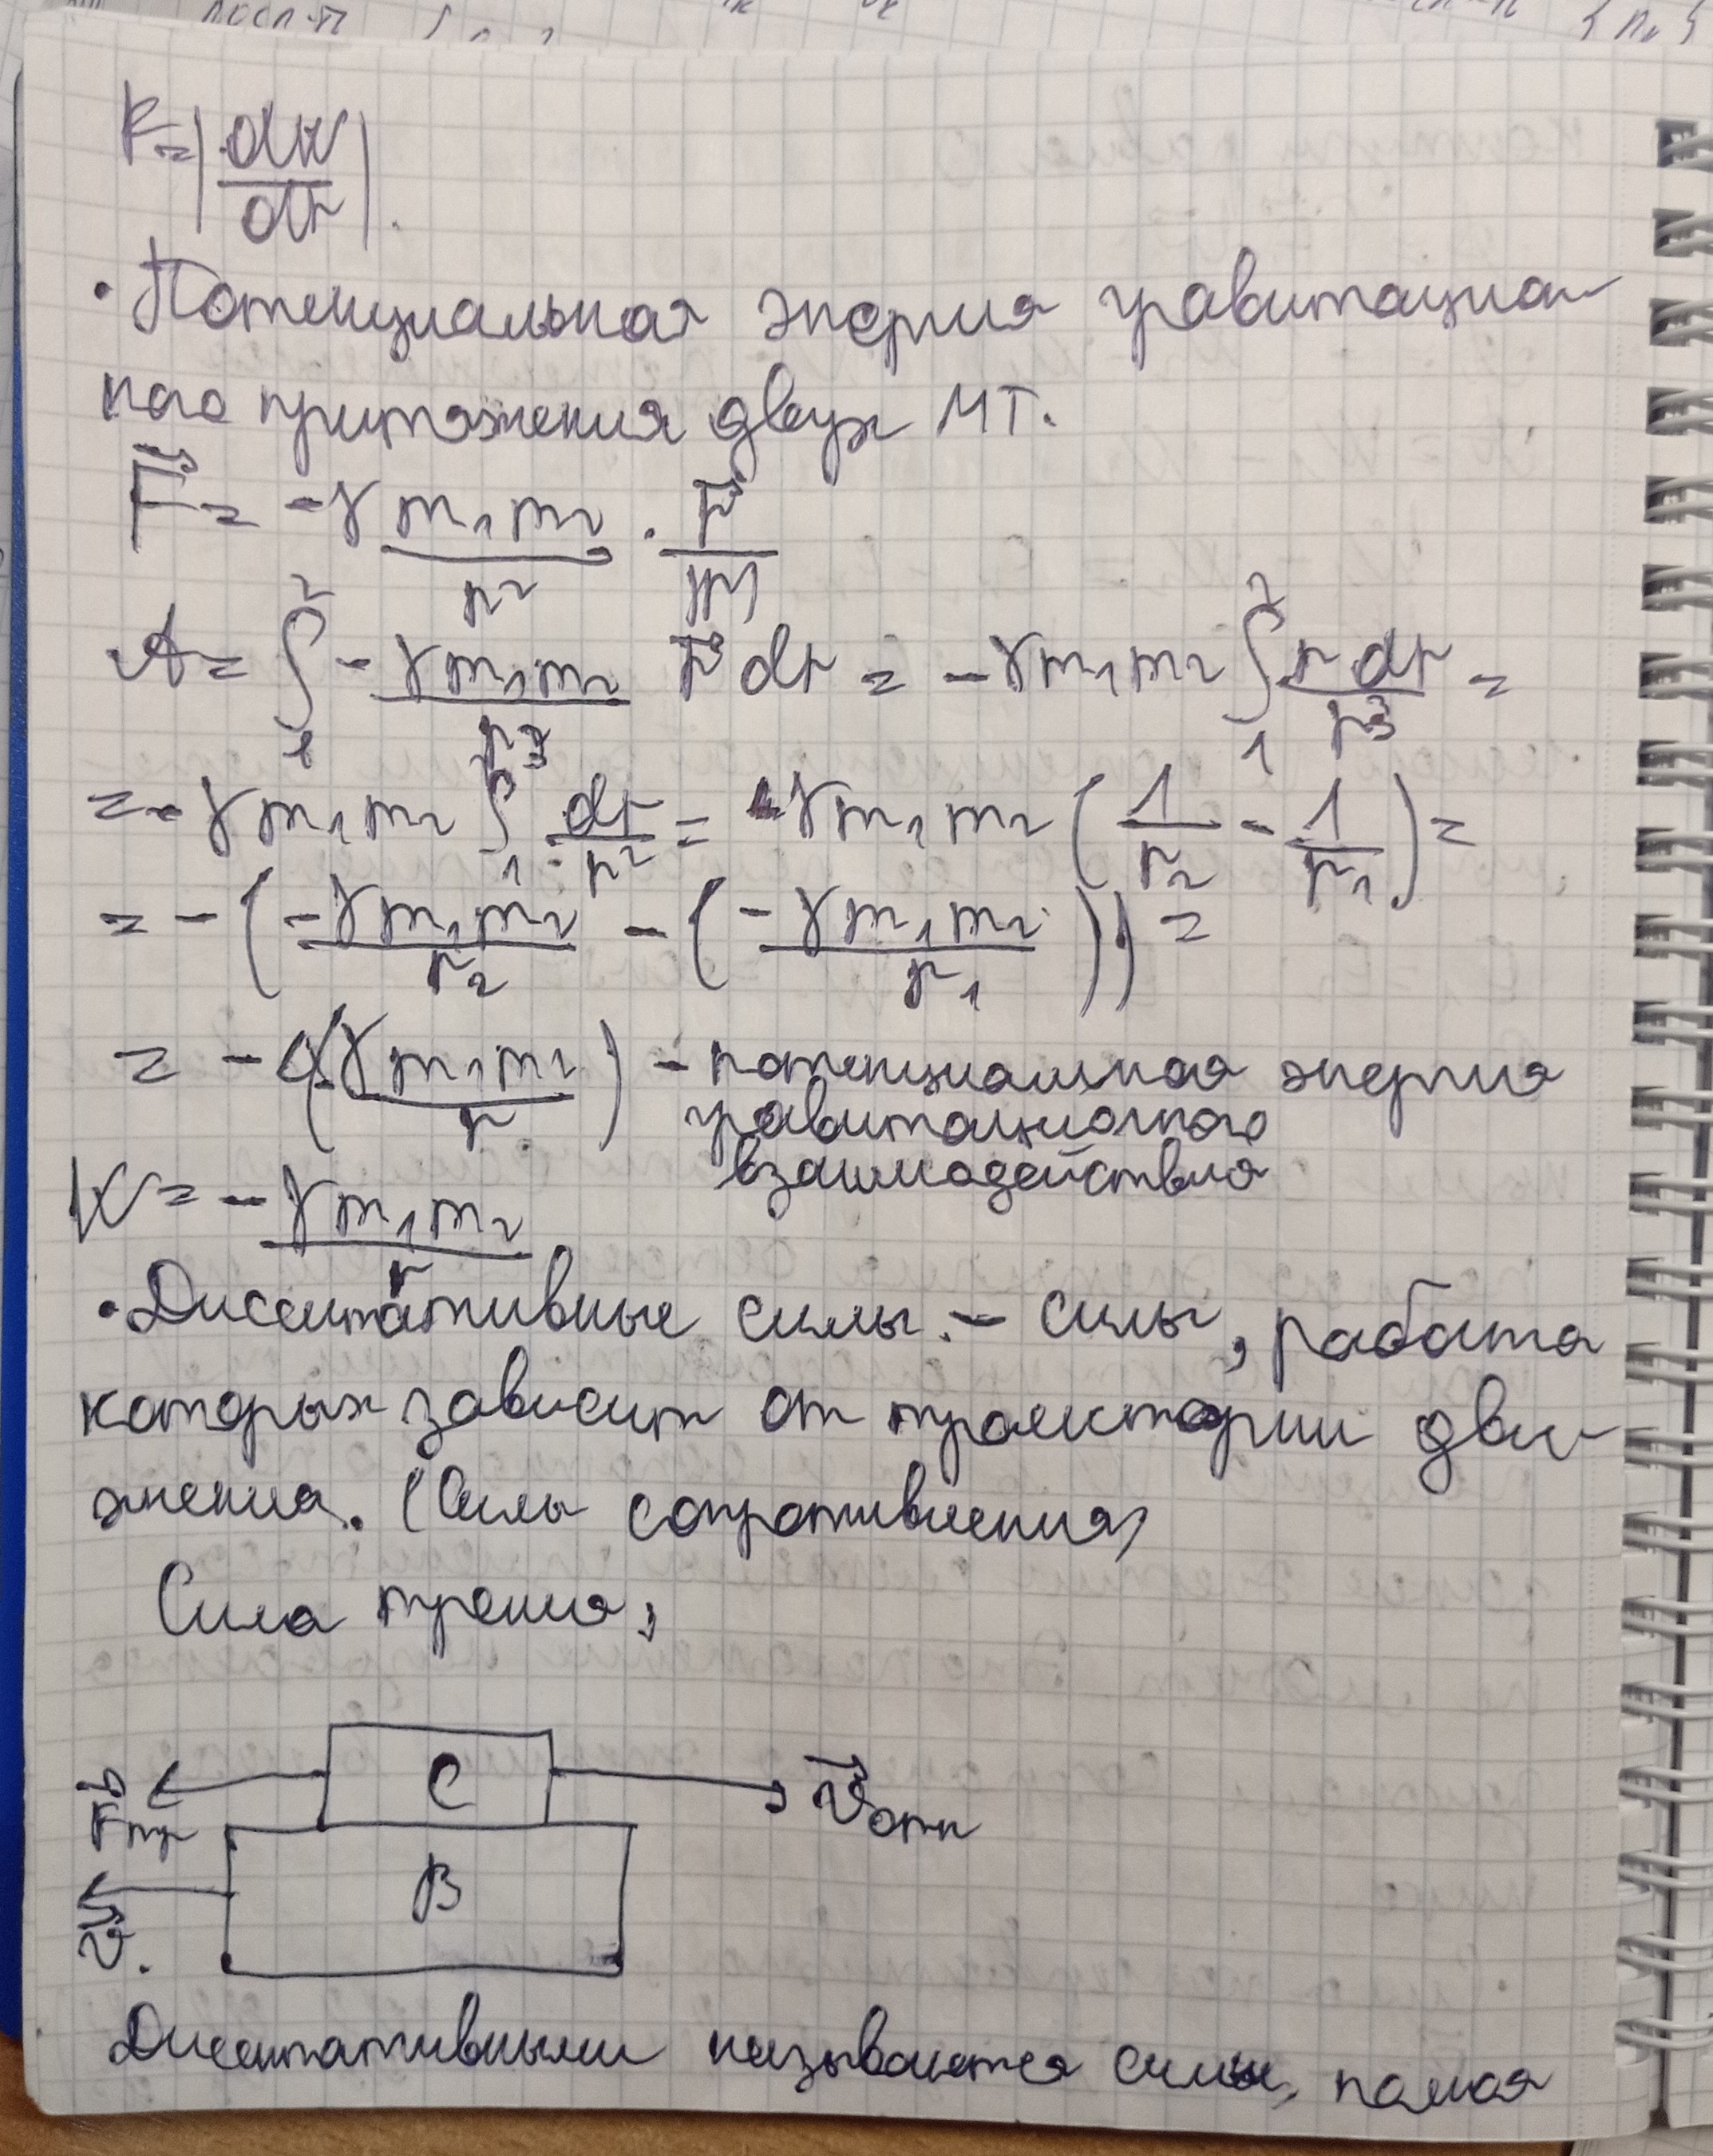 F=|dW/dr|.
• Потенциальная энергия гравитацион-
ного притяжения двух МТ.
F⃗ = -γ m₁m₂/r² · r⃗/|r|
A = ∫₁² - γm₁m₂/r³ r⃗ dr = -γm₁m₂ ∫₁² r dr/r³ =
= -γm₁m₂ ∫₁² dr/r² = γm₁m₂ (1/r₂ - 1/r₁) =
= -(-γm₁m₂/r₂ - (-γm₁m₂/r₁)) =
= -Δ(-γm₁m₂/r) - потенциальная энергия
гравитационного
взаимодействия
W = -γm₁m₂/r
• Диссипативные силы. - силы, работа
которых зависит от траектории дви-
жения. (Силы сопротивления)
Сила трения:
C
F⃗тр
v⃗отн
B
v⃗.
Диссипативными называются силы, полная